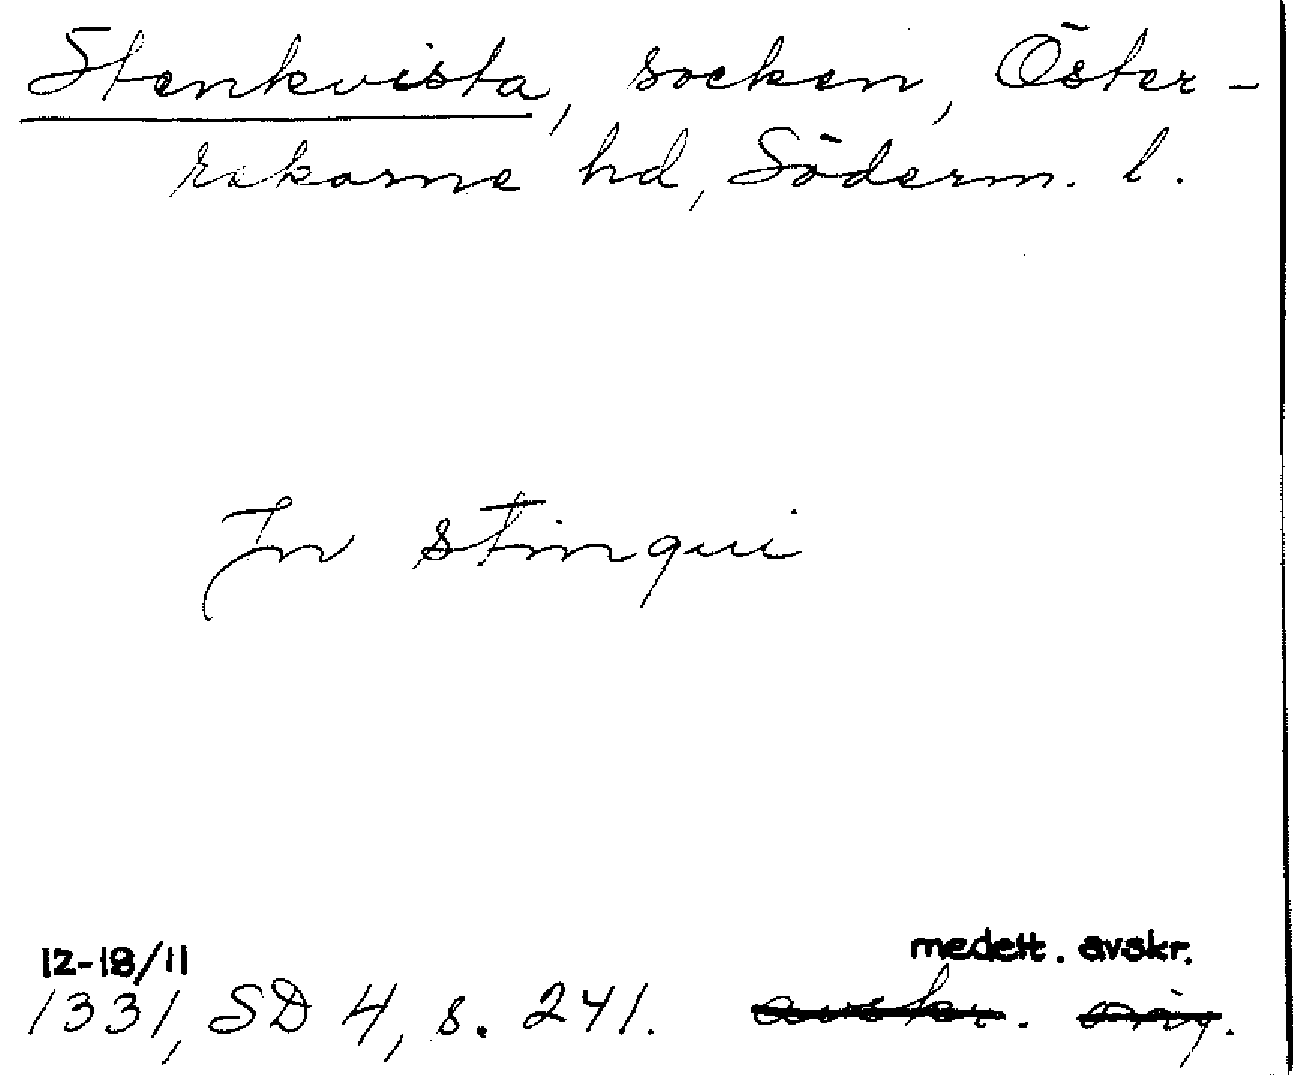 Stenkvista, socken, Öster-
rekarne hd, Söderm. l.
In stinqui
12-18/11 medelt. avskr.
1331, SD 4, s. 241. avskr. orig.